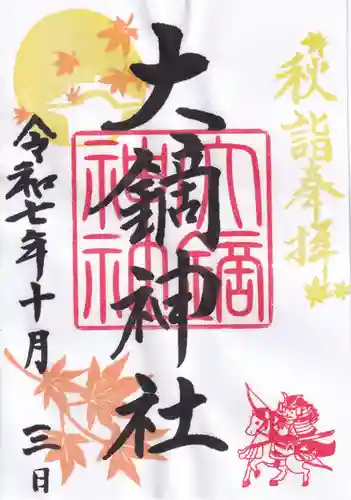 秋詣奉拝
大鏑神社
大鏑神社
令和七年十月三日